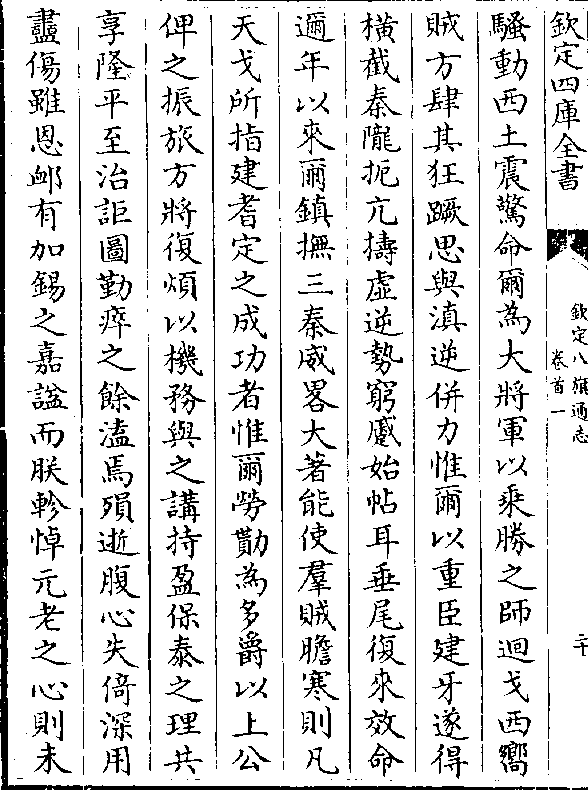 欽定四庫全書
欽定八旗通志
卷首一
二十
騷動西土震驚命爾為大將軍以乘勝之師迴戈西嚮
賊方肆其狂蹶思與滇逆併力惟爾以重臣建牙遂得
橫截秦隴扼亢擣虛逆勢窮蹙始帖耳垂尾復來效命
邇年以來爾鎮撫三秦威畧大著能使羣賊膽寒則凡
天戈所指建耆定之成功者惟爾勞勩為多爵以上公
俾之振旅方將復煩以機務與之講持盈保泰之理共
享隆平至治詎圖勤瘁之餘溘焉殞逝腹心失倚深用
衋傷雖恩卹有加錫之嘉諡而朕軫悼元老之心則未